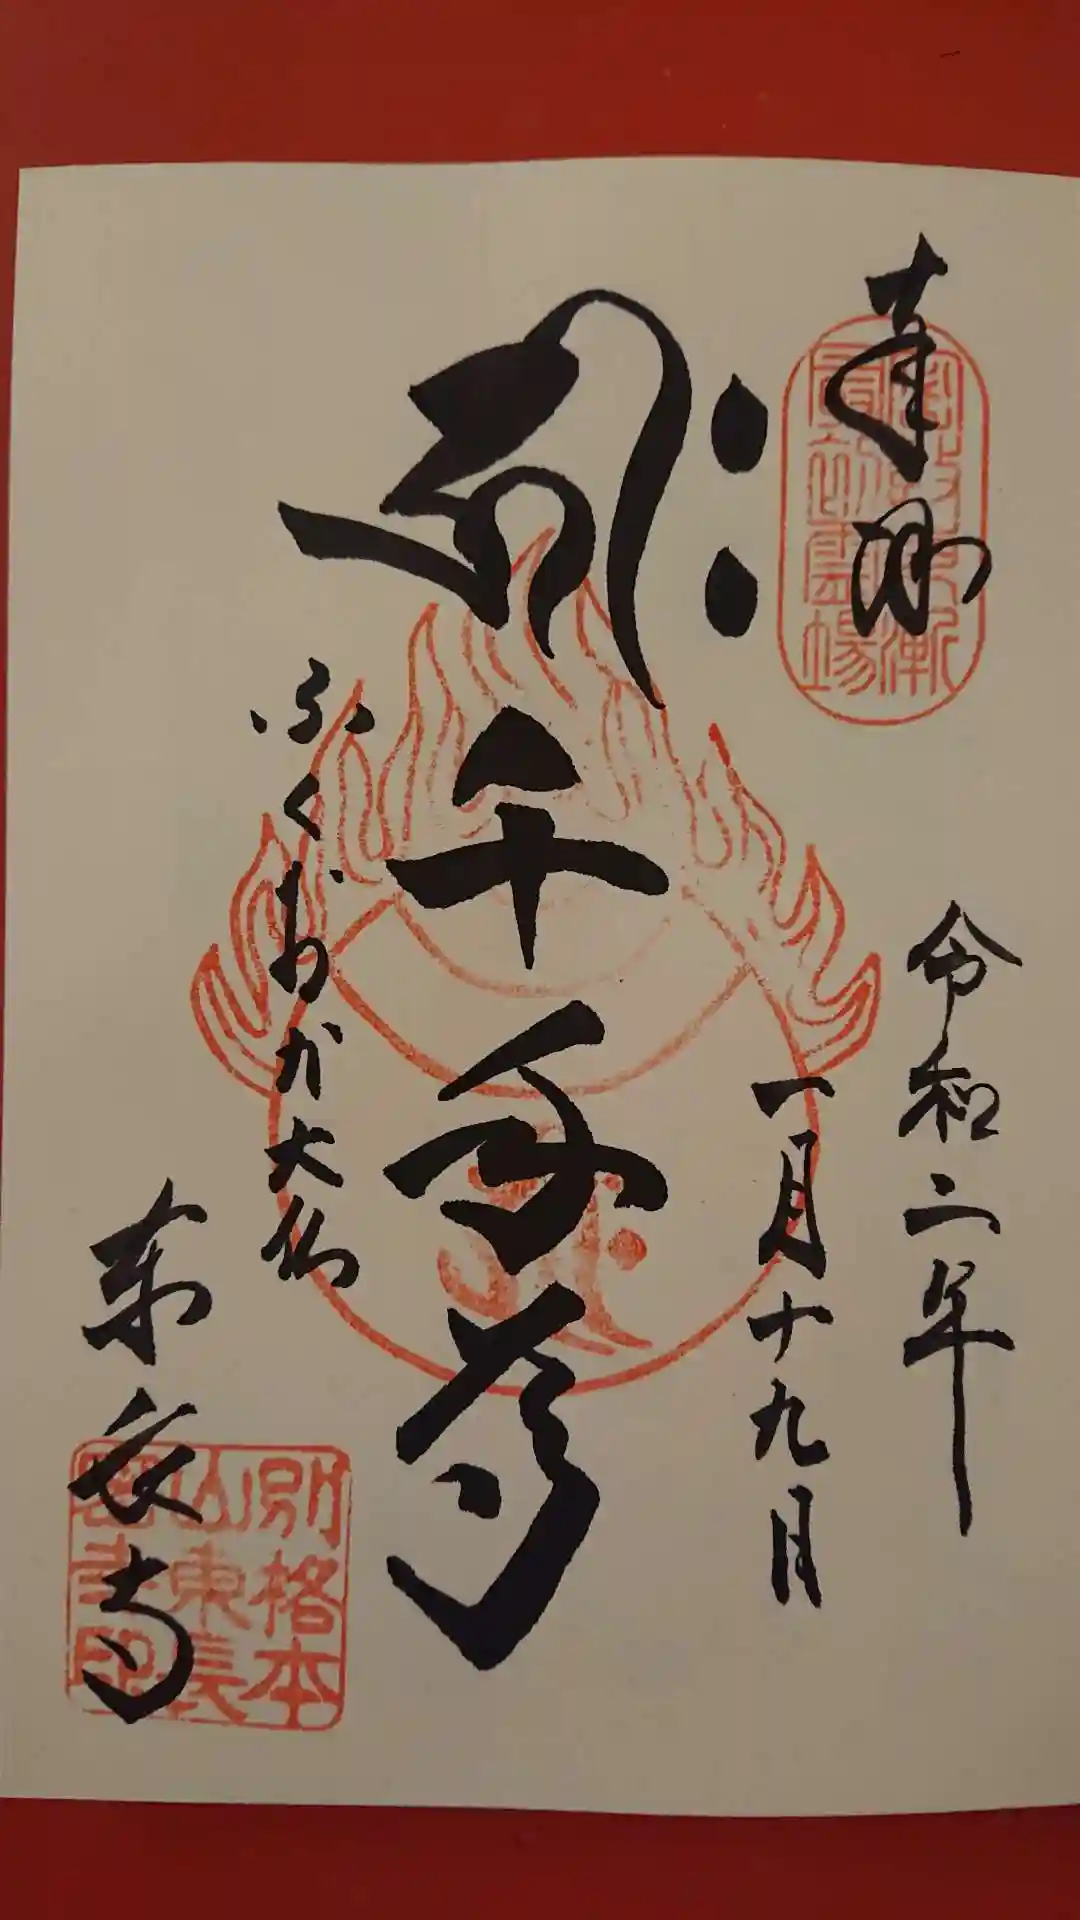 奉拝
令和二年
一月十九日
千手尊
ふくおか大仏
東長寺
別格本
山東長
密寺印